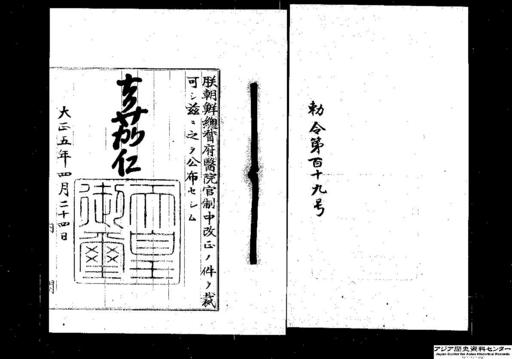 勅令第百十九号
朕朝鮮總督府醫院官制中改正ノ件ヲ裁
可シ茲ニ之ヲ公布セシム
嘉仁
天皇
御璽
大正五年四月二十四日
アジア歴史資料センター
Japan Center for Asian Historical Records